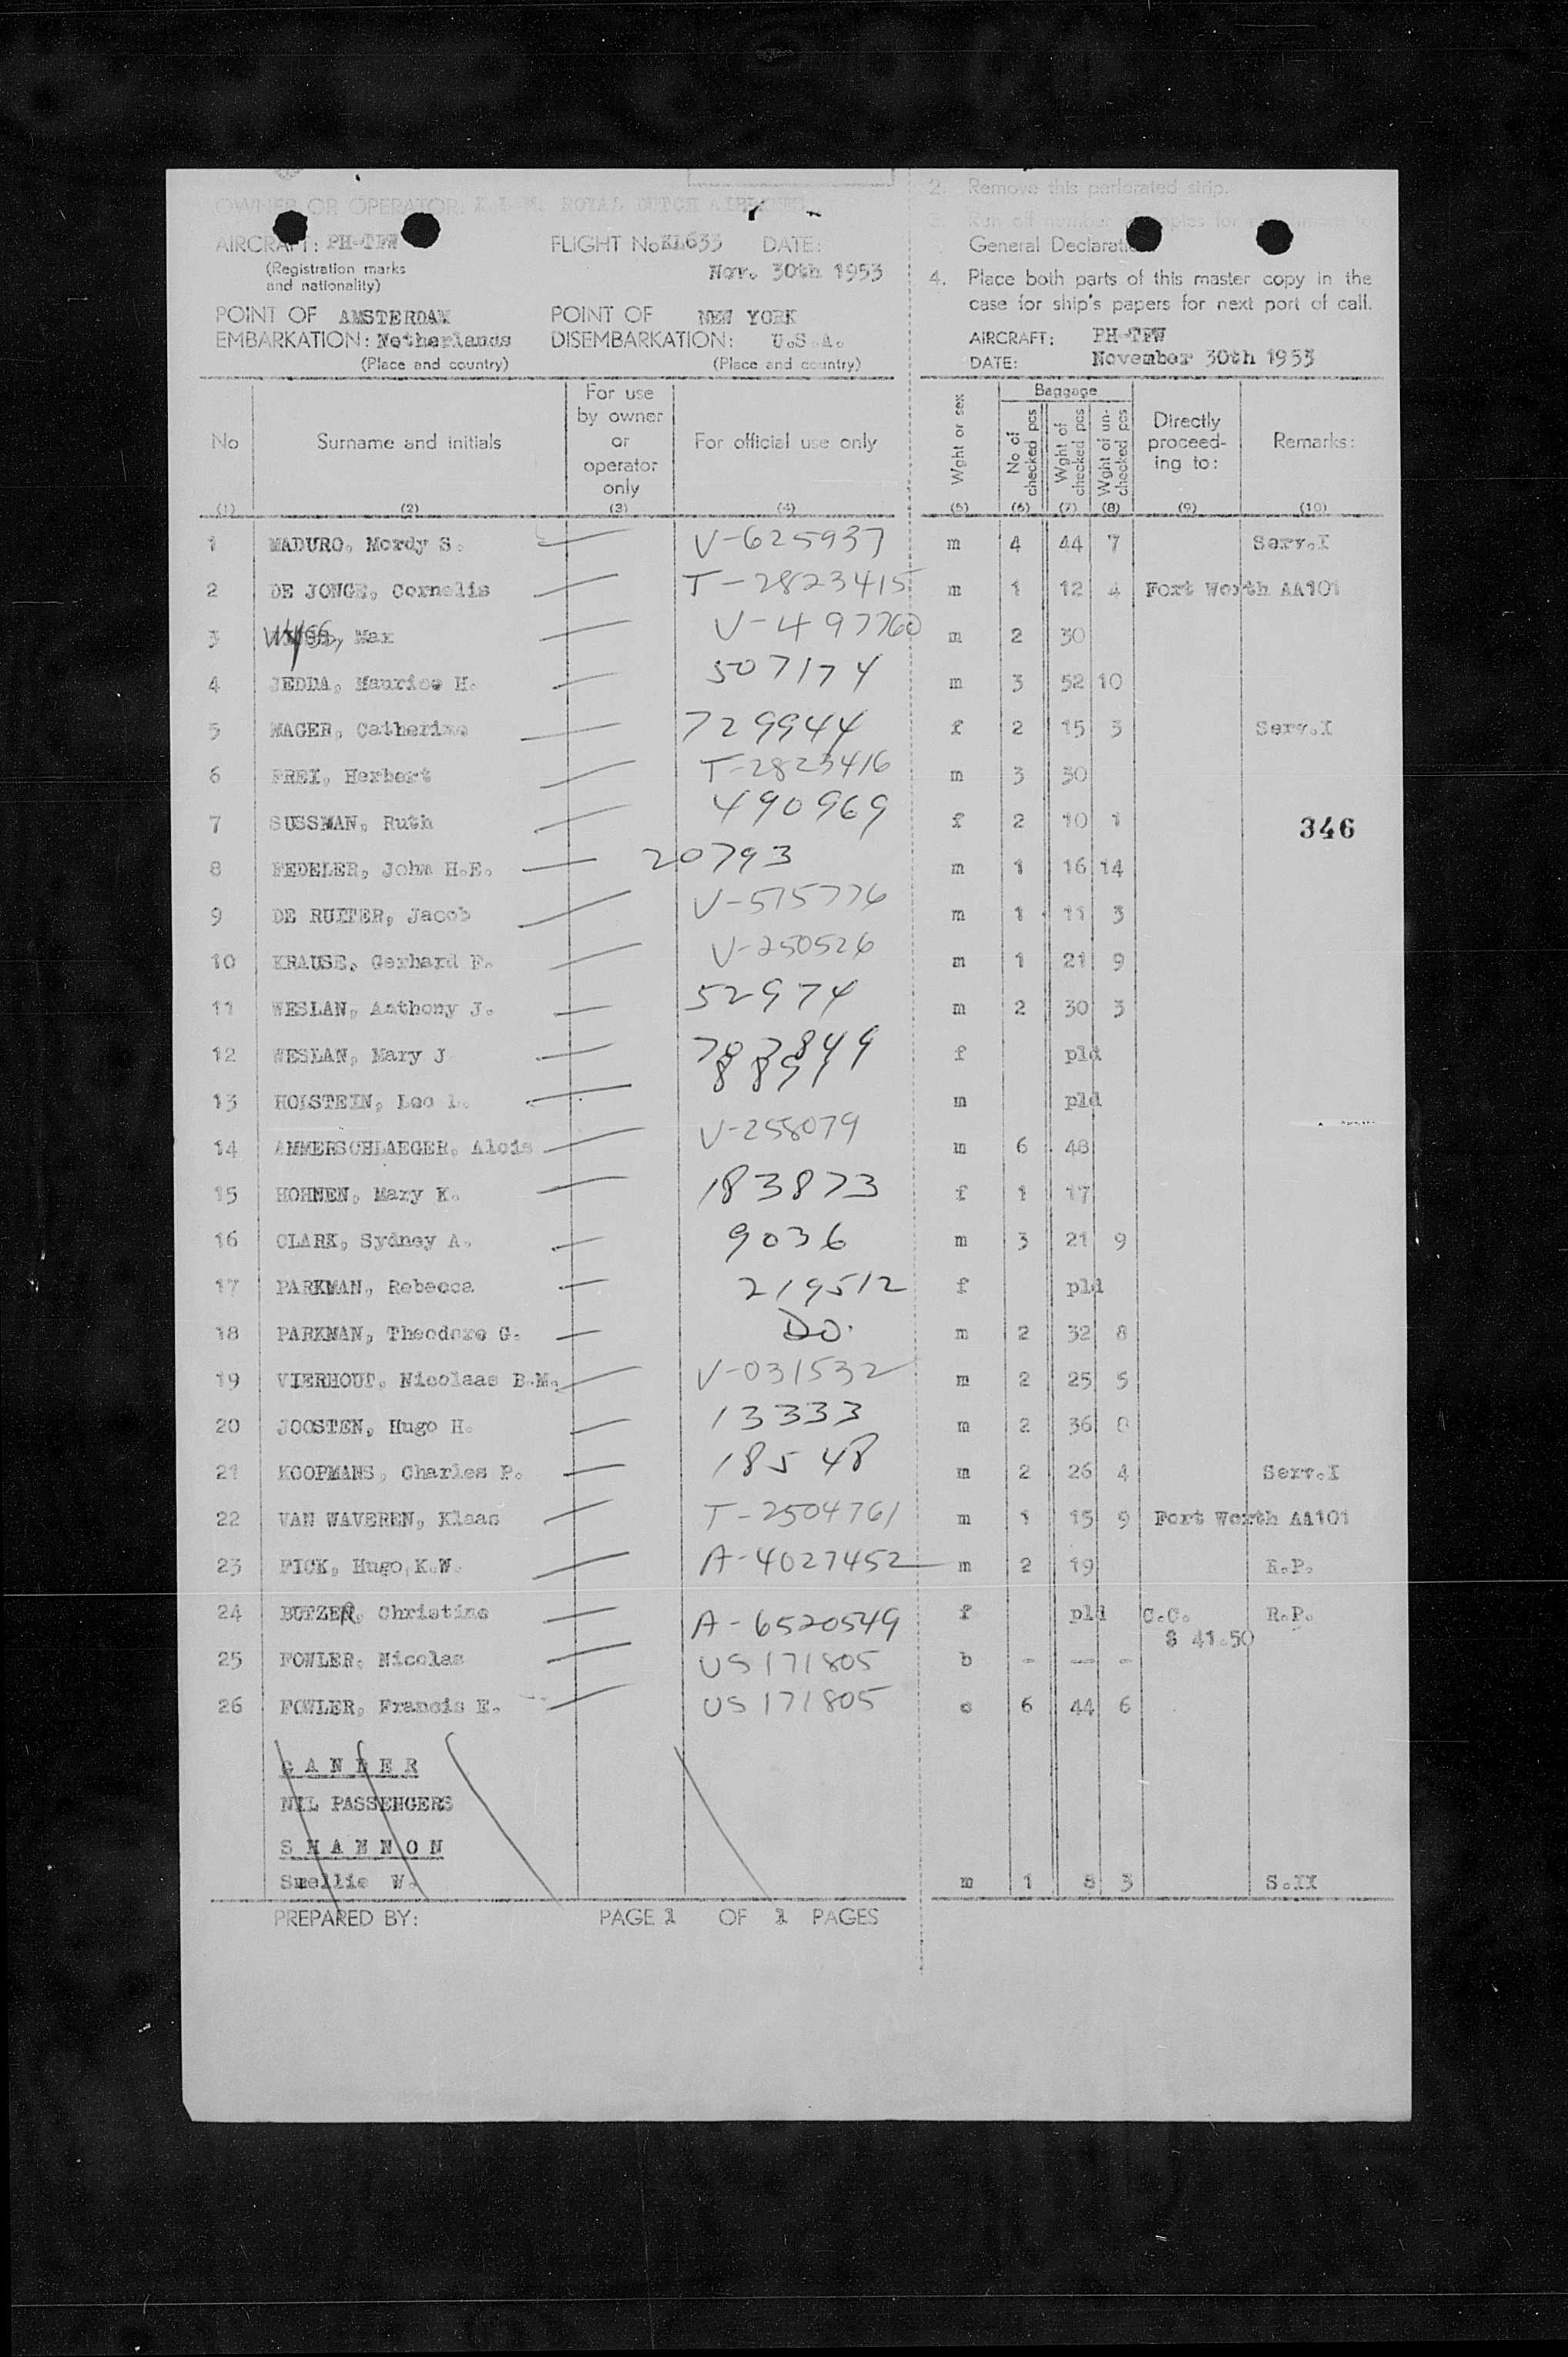 2. Remove this perforated strip.
OWNER OR OPERATOR: K.L.M. ROYAL DUTCH AIRLINES
AIRCRAFT: PH-TFW FLIGHT No KL633 DATE:
General Declaration
(Registration marks and nationality) Nov. 30th 1953
4. Place both parts of this master copy in the
case for ship's papers for next port of call.
POINT OF AMSTERDAM POINT OF NEW YORK
EMBARKATION: Netherlands DISEMBARKATION: U.S.A.
(Place and country) (Place and country)
AIRCRAFT: PH-TFW
DATE: November 30th 1953
No Surname and initials For use by owner or operator only For official use only Wght or sex Baggage No of checked pcs Wght of checked pcs Wght of un-checked pcs Directly proceed-ing to: Remarks:
(1) (2) (3) (4) (5) (6) (7) (8) (9) (10)
1 MADURO, Mordy S. V-625937 m 4 44 7 Serv.I
2 DE JONGE, Cornelis T-2823415 m 1 12 4 Fort Worth AA101
3 Max V-497760 m 2 30
4 JEDDA, Maurice H. 507174 m 3 52 10
5 MAGER, Catherine 729944 f 2 15 3 Serv.I
6 FREI, Herbert T-2823416 m 3 30
7 SUSSMAN, Ruth 490969 f 2 10 1
346
8 FEDELER, John H.E. 20793 m 1 16 14
9 DE RUITER, Jacob V-575776 m 1 11 3
10 KRAUSE, Gerhard F. V-250526 m 1 21 9
11 WESLAN, Anthony J. 52974 m 2 30 3
12 WESLAN, Mary J 707849 f pld
13 HOLSTEIN, Leo L. 8891 m pld
14 AMMERSCHLAEGER, Alois V-258079 m 6 48
15 HOHNEN, Mary K. 183873 f 1 17
16 CLARK, Sydney A. 9036 m 3 21 9
17 PARKMAN, Rebecca 219512 f pld
18 PARKMAN, Theodore G. DO. m 2 32 8
19 VIERHOUT, Nicolaas B.M. V-031532 m 2 25 5
20 JOOSTEN, Hugo H. 13333 m 2 36 8
21 KOOPMANS, Charles P. 18548 m 2 26 4 Serv.I
22 VAN WAVEREN, Klaas T-2504761 m 1 15 9 Fort Worth AA101
23 PICK, Hugo K.W. A-4027452 m 2 19 R.P.
24 BUTZER, Christine A-6520549 f pld C.C. R.P.
$ 41.50
25 FOWLER, Nicolas US 171805 b - -- -
26 FOWLER, Francis E. US 171805 c 6 44 6
GANDER
NIL PASSENGERS
SHANNON
Smellie W. m 1 8 3 S.II
PREPARED BY: PAGE 1 OF 1 PAGES